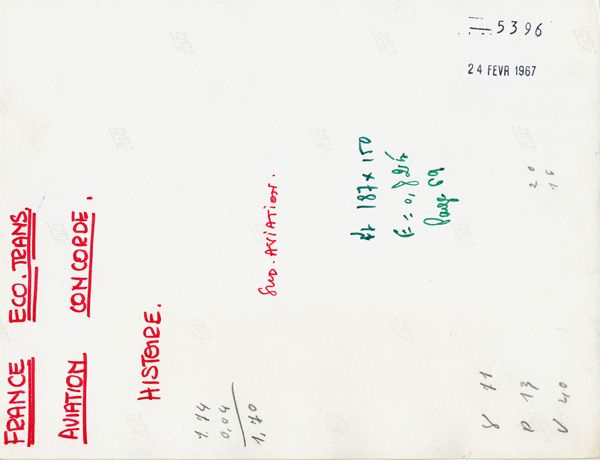 5396
24 FEVR 1967
FRANCE ECO.TRANS.
AVIATION CONCORDE.
HISTOIRE.
SUD.AVIATION.
187 x 150
E = 0,824
Page 69
20
16
1.74
0,04
1,70
8 71
P 13
V 40